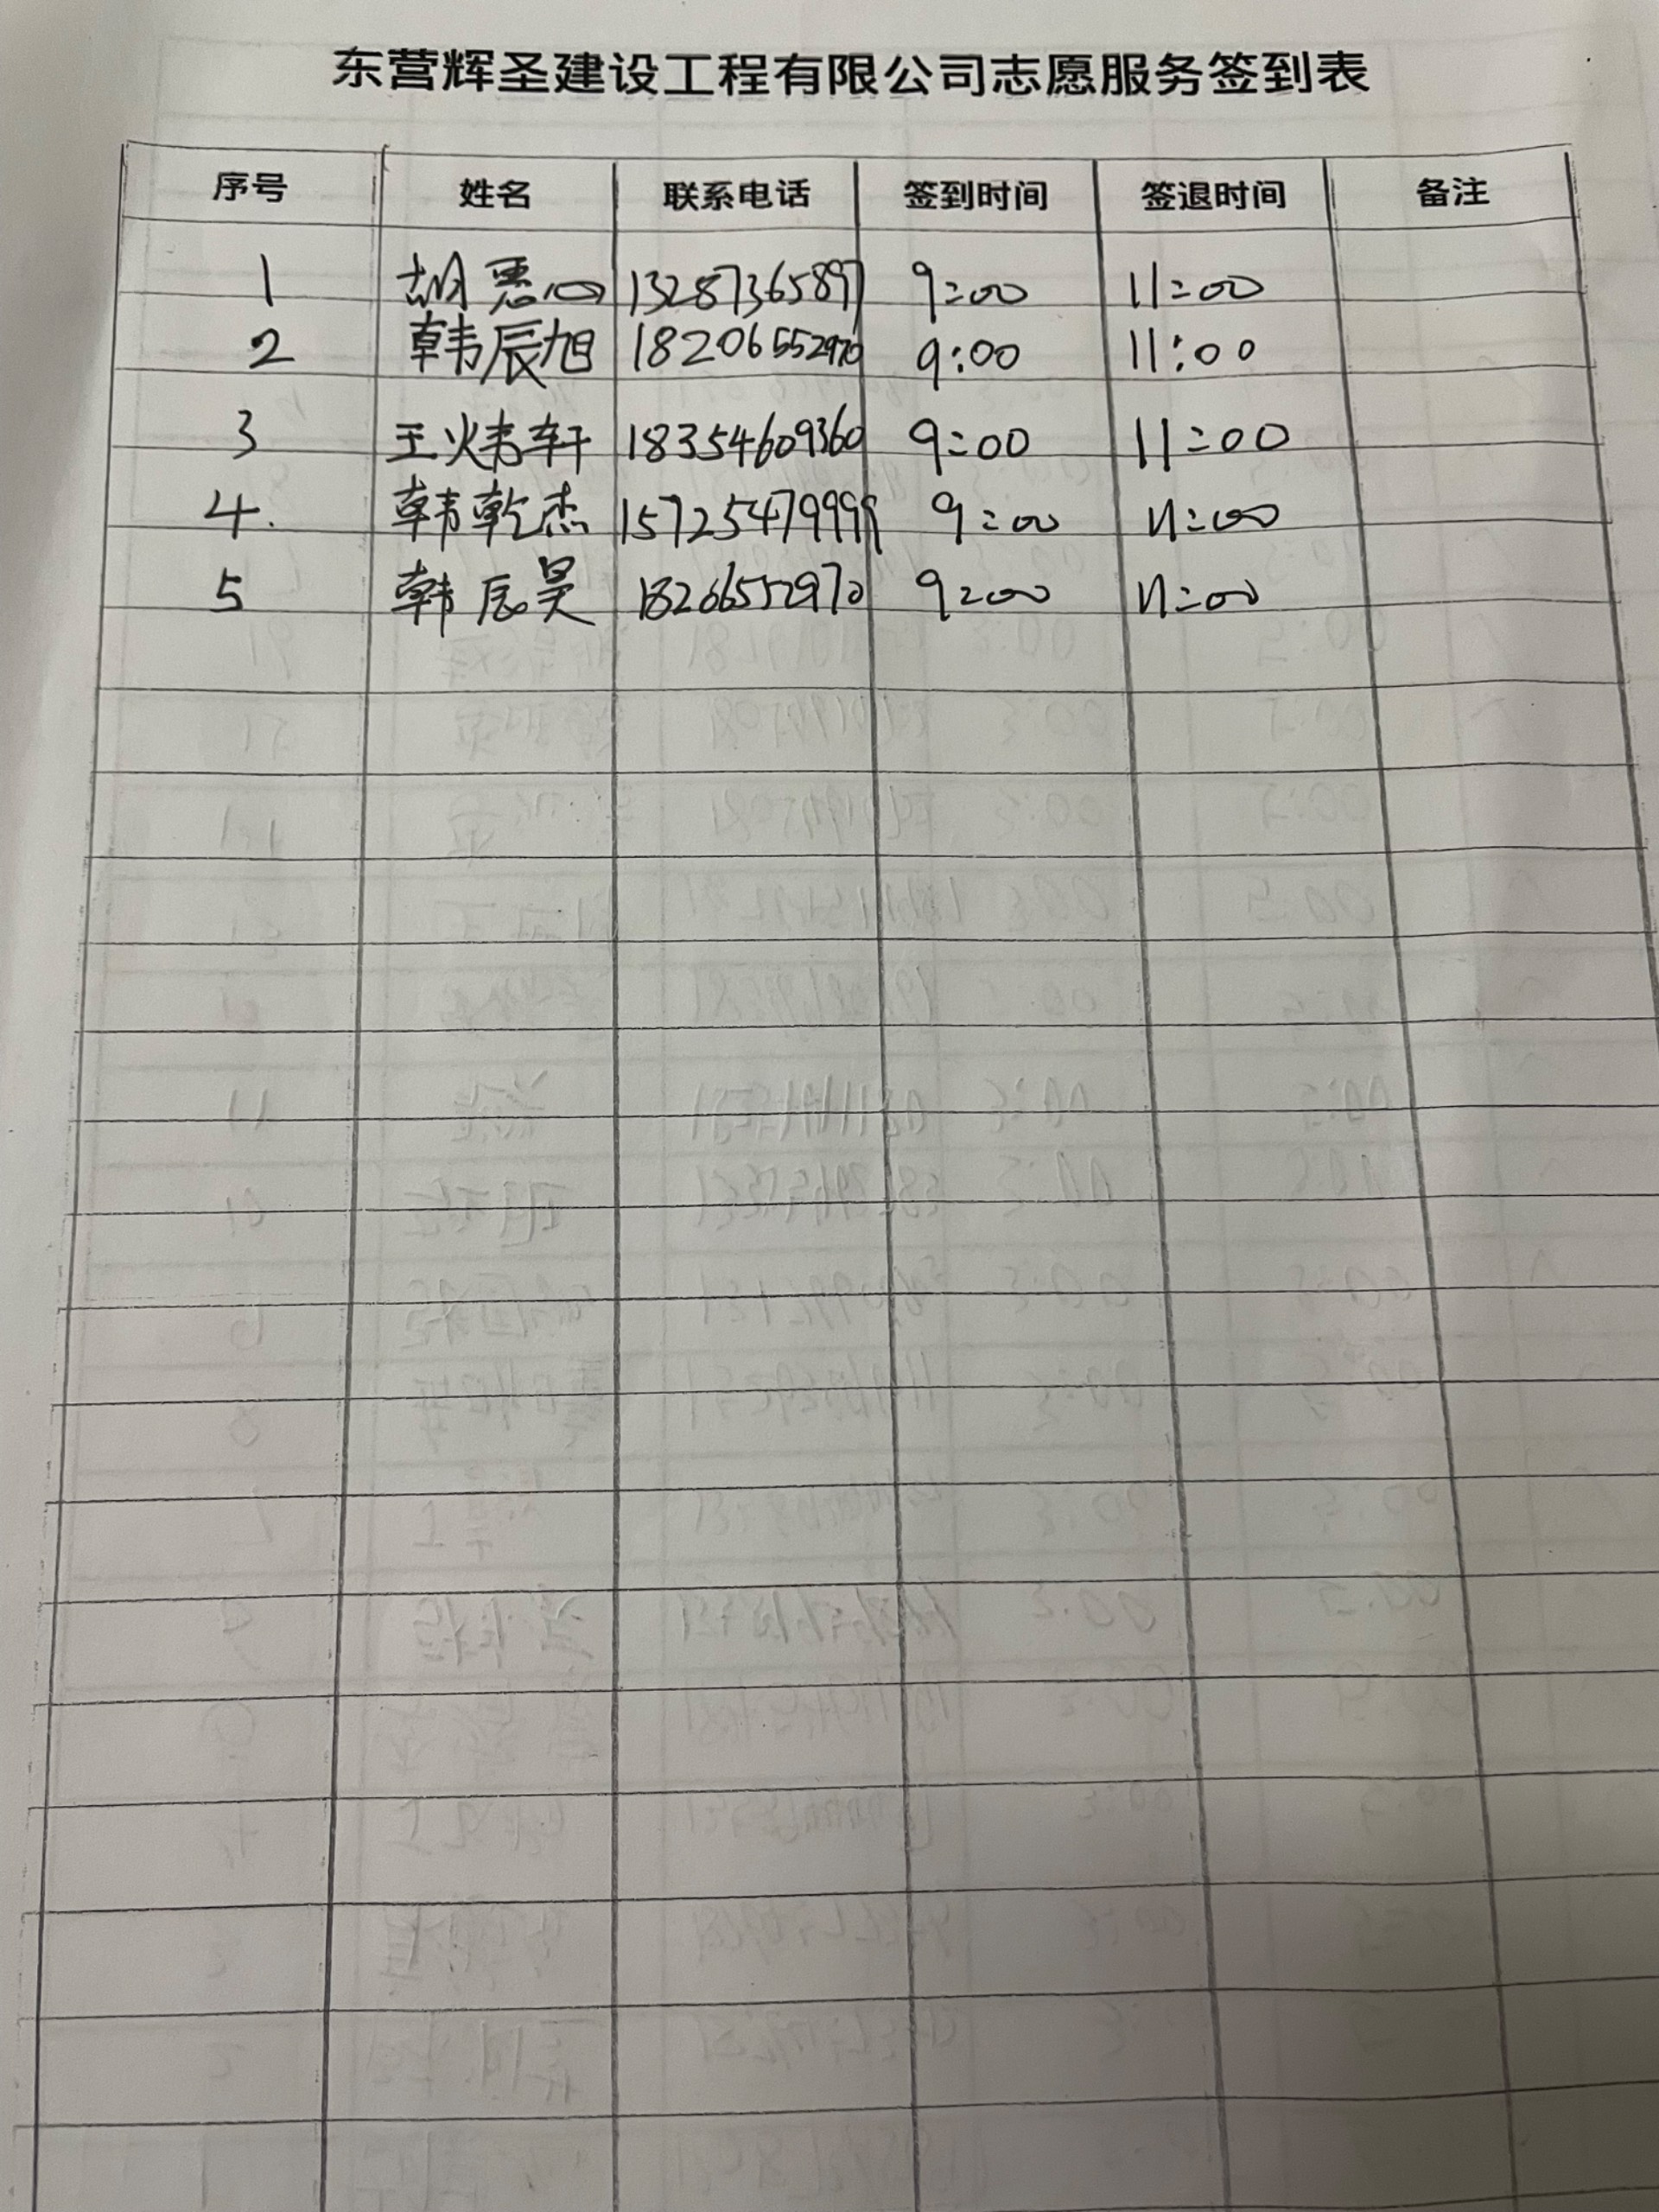 东营辉圣建设工程有限公司志愿服务签到表
序号 姓名 联系电话 签到时间 签退时间 备注
1 胡 13287365897 9:00 11:00
2 韩辰旭 18206552970 9:00 11:00
3 王炜轩 18354609360 9:00 11:00
4. 韩乾杰 15725479999 9:00 11:00
5 韩辰昊 18266552970 9:00 11:00